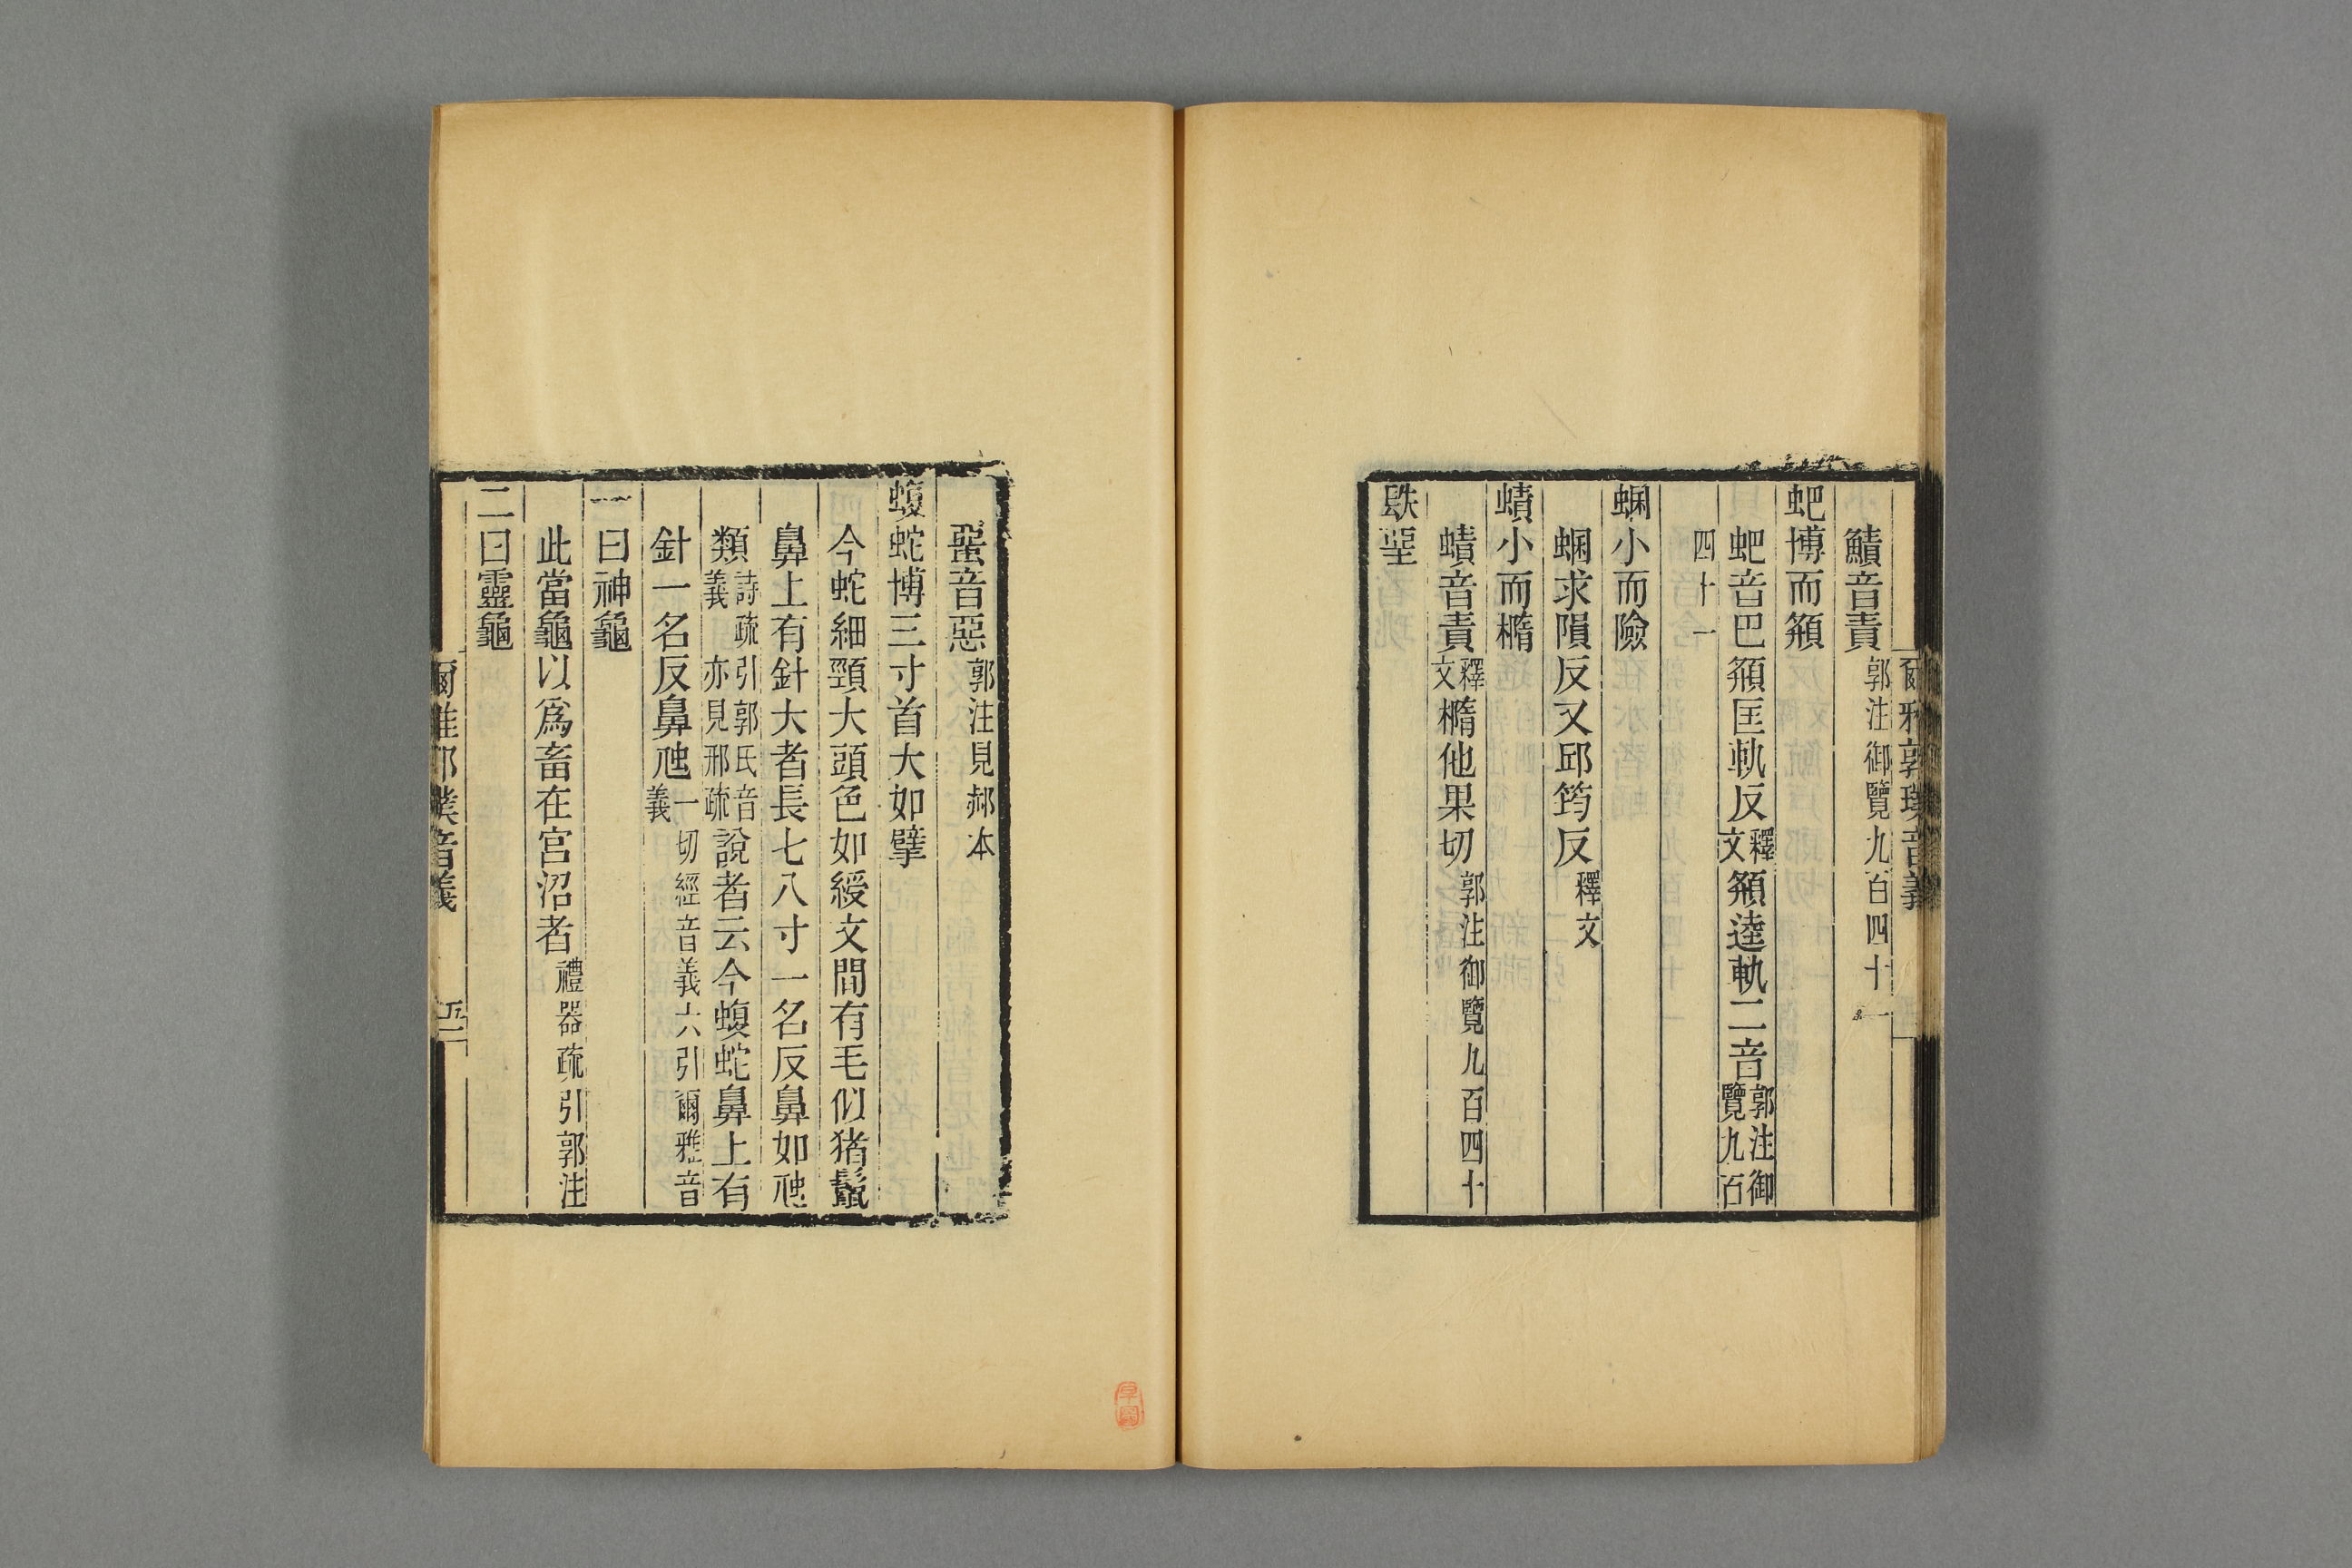 爾雅郭璞音義
鰿音責郭注御覽九百四十一
蚆博而頯
蚆音巴頯匡軌反釋文頯逵軌二音郭注御覽九百
四十一
蜠小而險
蜠求隕反又邱筠反釋文
蟦小而橢
蟦音責釋文橢他果切郭注御覽九百四十
镻蝁
蝁音惡郭注見郝本
蝮蛇博三寸首大如擘
今蛇細頸大頭色如綬文間有毛似猪鬣
鼻上有針大者長七八寸一名反鼻如虺
類詩疏引郭氏音義亦見邢疏說者云今蝮蛇鼻上有
針一名反鼻虺一切經音義六引爾雅音義
一曰神龜
此當龜以爲畜在宮沼者禮器疏引郭注
二曰靈龜
爾雅郭璞音義